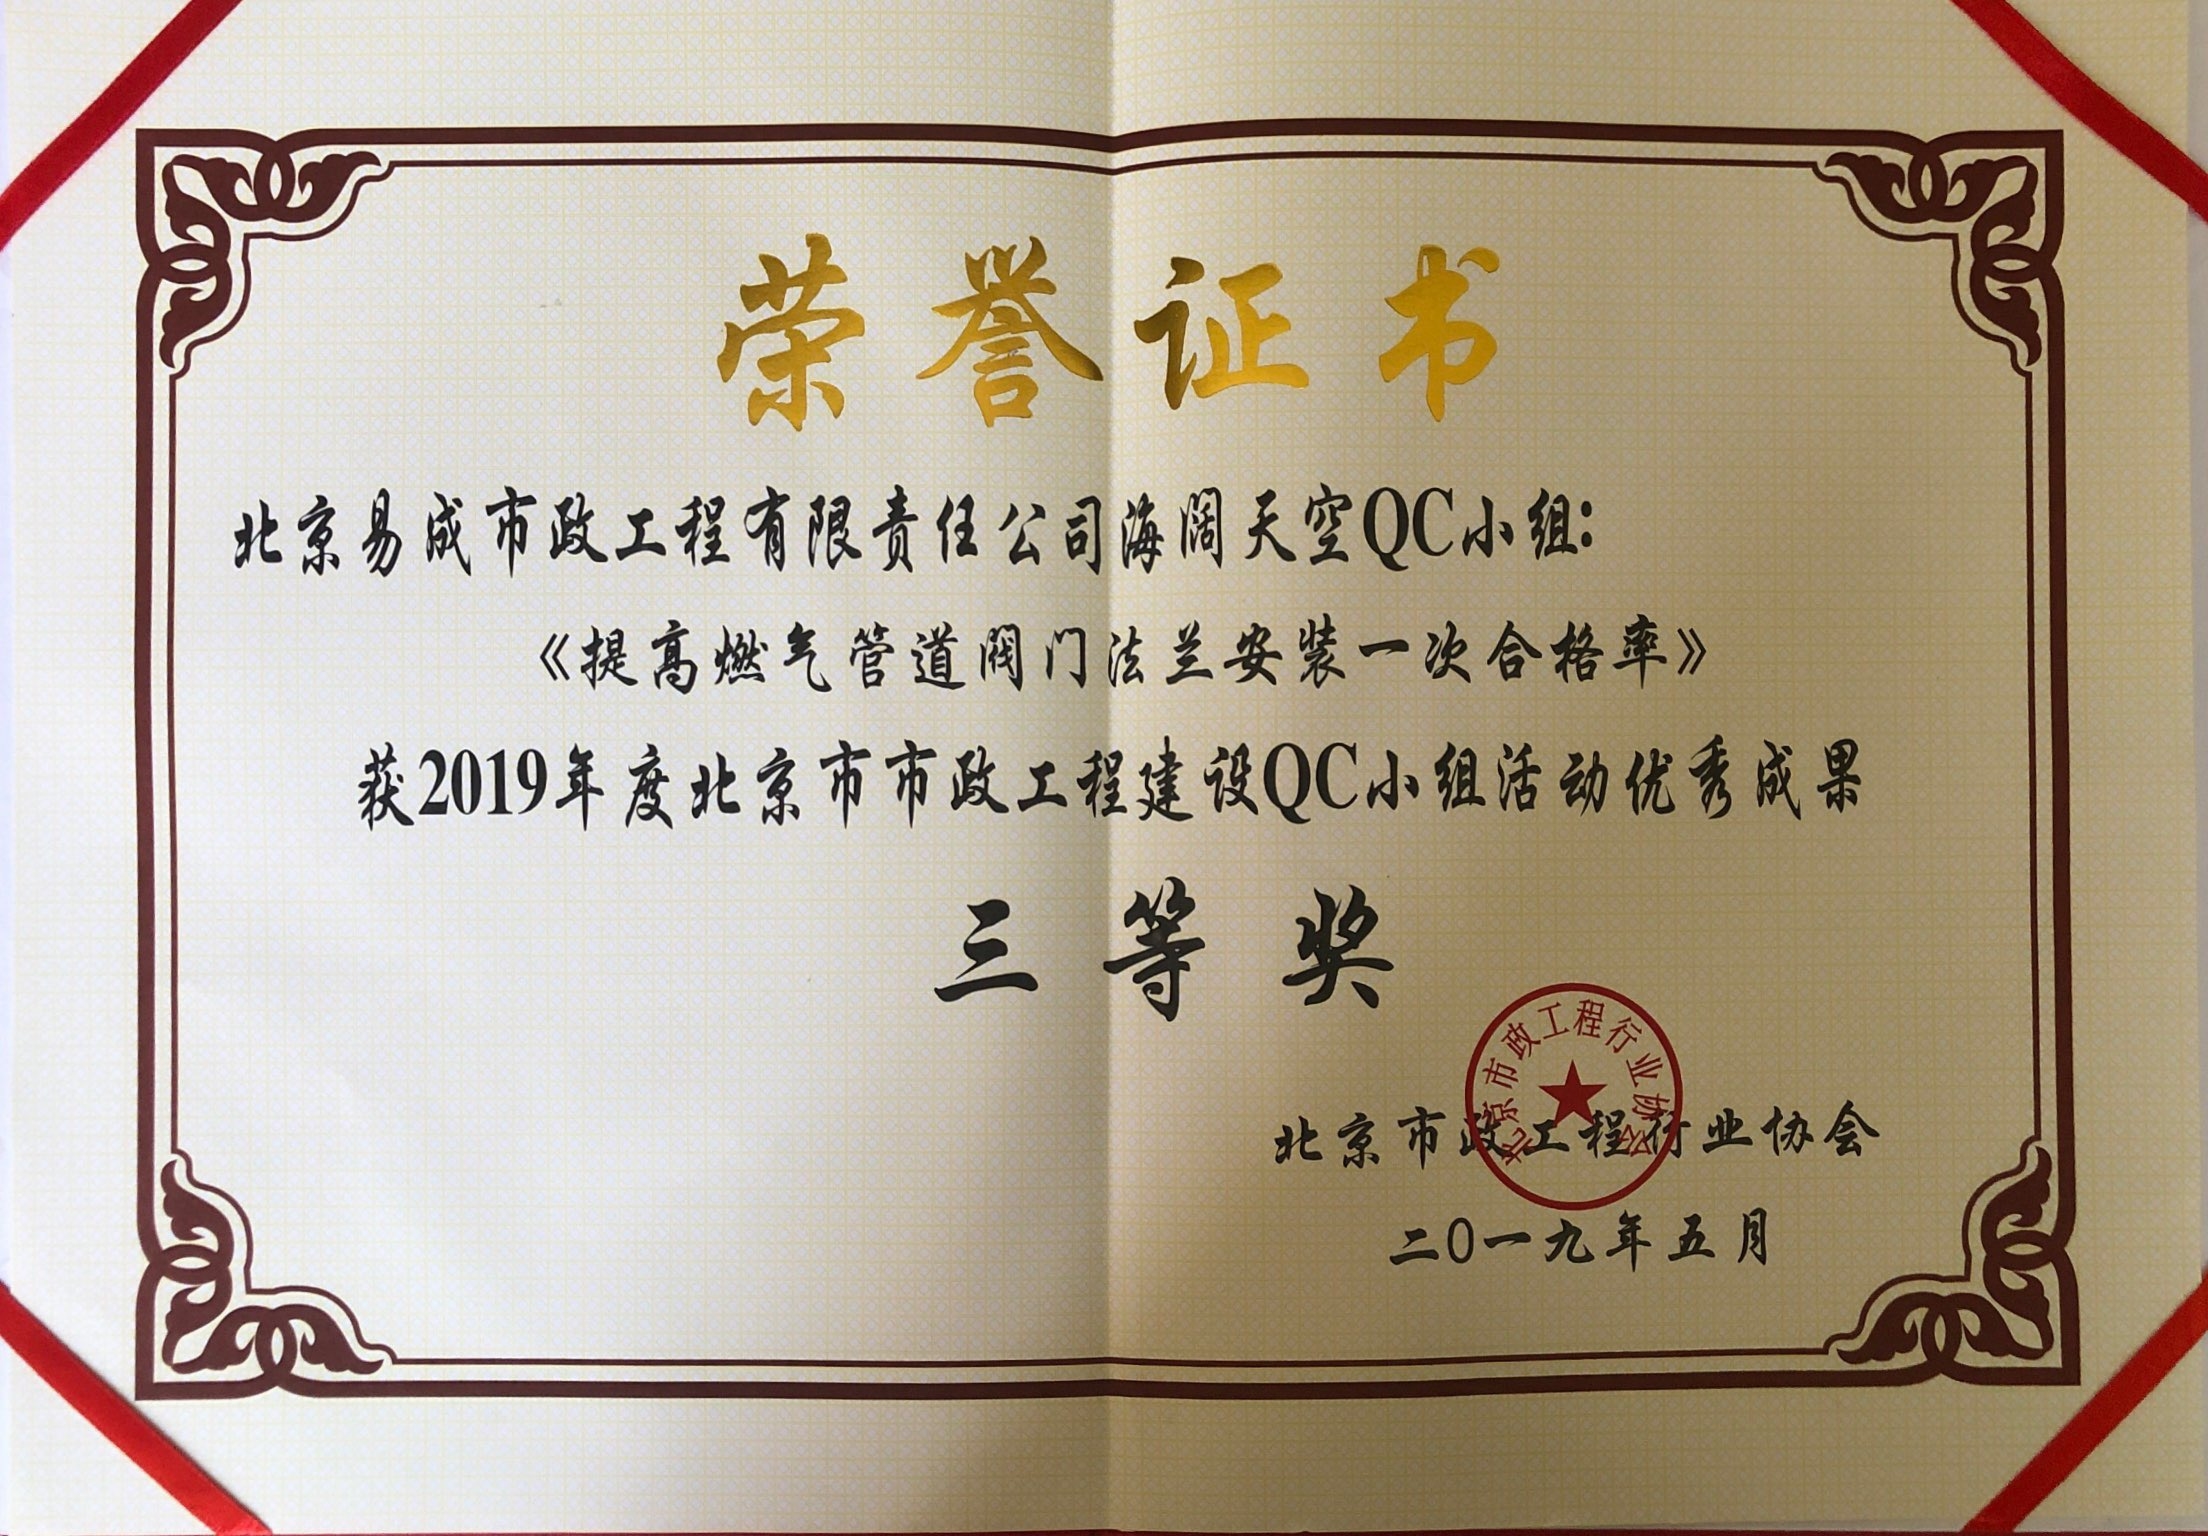 荣誉证书
北京易成市政工程有限责任公司海阔天空QC小组:
《提高燃气管道阀门法兰安装一次合格率》
获2019年度北京市市政工程建设QC小组活动优秀成果
三等奖
北京市政工程行业协会
北京市政工程行业协会
二〇一九年五月